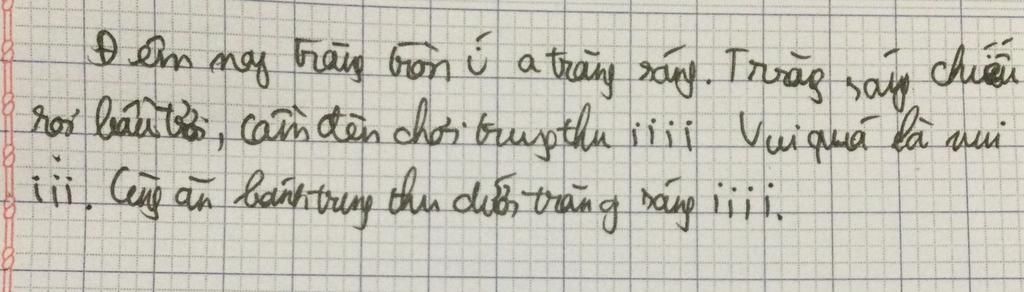 Đêm nay trăng tròn í a trăng sáng. Trăng sáng chiếu
rọi bầu trời, cầm đèn chơi trung thu iiii Vui quá là vui
iii. Cùng ăn bánh trung thu dưới trăng sáng iiii.